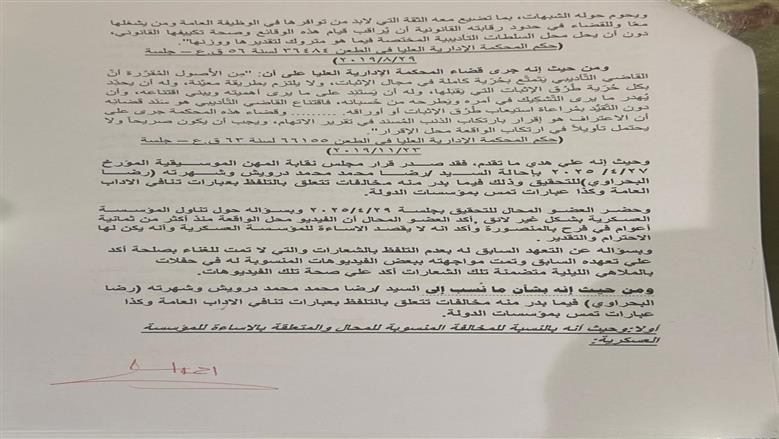 ويحوم حوله الشبهات، بما تضيع معه الثقة التي لابد من توافرها في الوظيفة العامة ومن يشغلها
معا وللقضاء في حدود رقابته القانونية أن يُراقب قيام هذه الوقائع وصحة تكييفها القانوني،
دون أن يحل محل السلطات التأديبية المختصة فيما هو متروك لتقديرها ووزنها".
(حكم المحكمة الإدارية العليا في الطعن ٣٦٤٨٤ لسنة ٥٦ ق.ع – جلسة
٢٠١٩/٨/٢٩)
ومن حيث إنه جرى قضاء المحكمة الإدارية العليا على أن: "مِن الأصول المُقرَّرة أنَّ
القاضي التأديبي يَتمتَّع بحُرّية كاملة في مجال الإثبات، ولا يلتزم بطريقة معيَّنة، وله أن يحدِّد
بكل حُرّية طرُق الإثبات التي يَقبَلها، وله أن يَستنِد على ما يرى أهميته ويبني اقتناعه، وأن
يُهدر ما يرى التشكيك في أمره ويطرحه من حُسبانه، فاقتناع القاضي التأديبي هو سَنَد قضائه
دون التقيُّد بمُراعاة استيعاب طرُق الإثبات أو أوراقه. ........ وقضاء هذه المحكمة جرى على
أن الاعتراف هو إقرار بارتكاب الذنب المُسنَد في تقرير الاتهام، ويجب أن يكون صريحاً ولا
يحتمل تأويلاً في ارتكاب الواقعة محل الإقرار".
(حكم المحكمة الإدارية العليا في الطعن ٦٦١٥٥ لسنة ٦٣ ق.ع – جلسة
٢٠١٩/١١/٢٣)
وحيث إنه على هدي ما تقدم، فقد صدر قرار مجلس نقابة المهن الموسيقية المؤرخ
٢٠٢٥/٤/٢٧ بإحالة السيد/رضا محمد محمد درويش وشهرته (رضا
البحراوي)للتحقيق وذلك فيما بدر منه مخالفات تتعلق بالتلفظ بعبارات تنافي الاداب
العامة وكذا عبارات تمس بمؤسسات الدولة.
وحضر العضو المحال للتحقيق بجلسة ٢٠٢٥/٤/٢٩ وبسؤاله حول تناول المؤسسة
العسكرية بشكل غير لائق، أكد العضو المحال أن الفيديو محل الواقعة منذ أكثر من ثمانية
أعوام في فرح بالمنصورة وأكد انه لا يقصد الاساءة للمؤسسة العسكرية وأنه يكن لها
الاحترام والتقدير.
وبسؤاله عن التعهد السابق له بعدم التلفظ بالشعارات والتي لا تمت للغناء بصلحة أكد
علي تعهده السابق وتمت مواجهته ببعض الفيديوهات المنسوبة له في حفلات
بالملاهي الليلية متضمنة تلك الشعارات أكد علي صحة تلك الفيديوهات.
ومن حيث إنه بشأن ما نُسب إلى السيد /رضا محمد محمد درويش وشهرته (رضا
البحراوي) فيما بدر منه مخالفات تتعلق بالتلفظ بعبارات تنافي الاداب العامة وكذا
عبارات تمس بمؤسسات الدولة.
أولا:وحيث أنه بالنسبة للمخالفة المنسوبة للمحال والمتعلقة بالاساءة للمؤسسة
العسكرية: